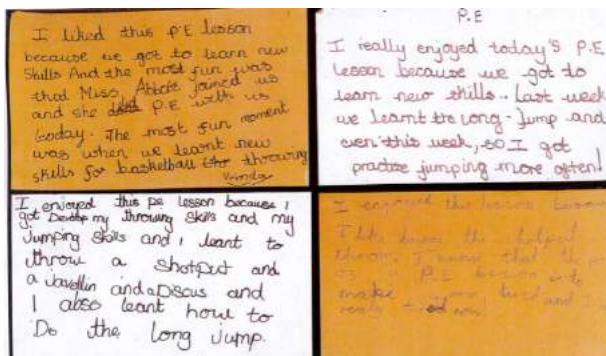 I liked this P.E lesson
because we got to learn new
skills And the most fun was
that Miss Abbott joined us
and she P.E with us
today. The most fun moment
was when we learnt new
skills for basketball throwing
P.E
I really enjoyed today's P.E
lesson because we got to
learn new skills.. Last week
we learnt the long-jump and
even this week, so I got
practise jumping more often!
I enjoyed this pe lesson because I
got Develop my throwing skills and my
Jumping skills and I leant to
throw a shotput and
a Javellin and a Discus and
I also leant how to
Do the long jump.
I enjoyed the lesson
I the helped
throw. I know that the
as a P.E lesson is to
make your and I
really now